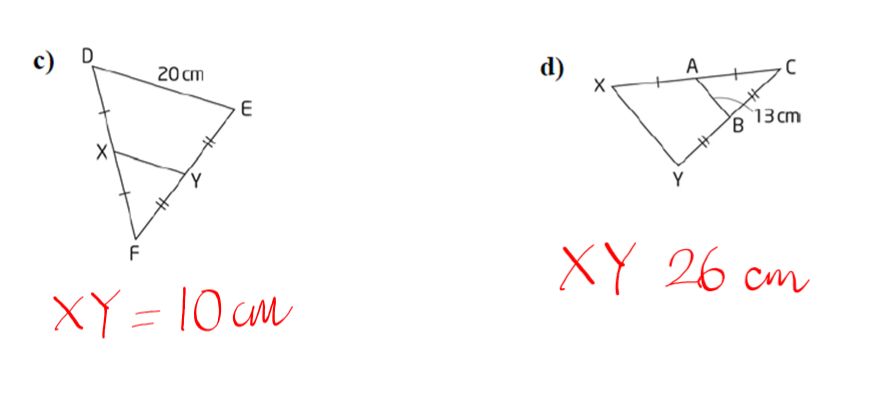 c)
D
20 cm
E
X
Y
F
XY = 10 cm
d)
X
A
C
B
13 cm
Y
XY 26 cm